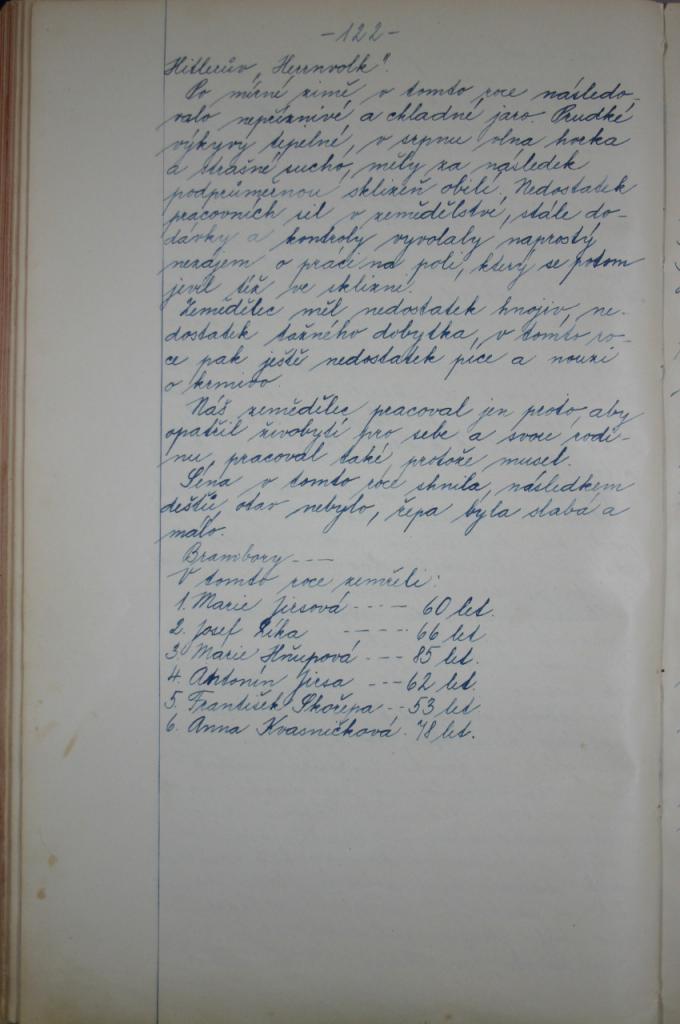 -122-
Hitlerův „Herrnvolk".
Po mírné zimě v tomto roce následo-
valo nepříznivé a chladné jaro. Prudké
výkyvy tepelné, v srpnu vlna horka
a strašné sucho, měly za následek
podprůměrnou sklizeň obilí. Nedostatek
pracovních sil v zemědělství, stále do-
dávky a kontroly vyvolaly naprostý
nezájem o práci na poli, který se potom
jevil též ve sklizni.
Zemědělec měl nedostatek hnojiv, ne-
dostatek tažného dobytka, v tomto ro-
ce pak ještě nedostatek píce a nouzi
o krmivo.
Náš zemědělec pracoval jen proto, aby
opatřil živobytí pro sebe a svou rodi-
nu, pracoval také protože musel.
Sena v tomto roce shnila, následkem
deštů, otav nebylo, řepa byla slabá a
málo.
Brambory ---
V tomto roce zemřeli:
1. Marie Jirsová ---- 60 let.
2. Josef Zíka ---- 66 let
3. Marie Hňupová --- 85 let.
4. Antonín Jirsa --- 62 let.
5. František Skořepa -- 53 let.
6. Anna Kvasničková. 78 let.